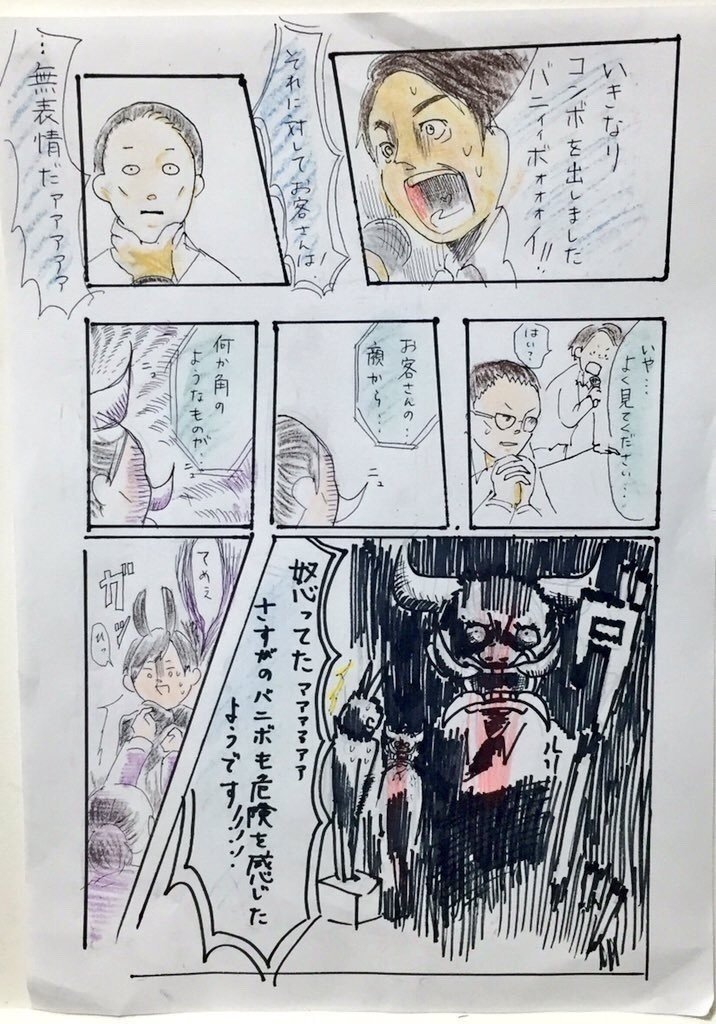 いきなり
コンボを出しました
バニィィボォォォイ!!
それに対してお客さんは!
…無表情だァァァァァ
いや…
よく見てください…
はい?
お客さんの…
顔から…
ニュ
何か角の
ようなものが…
ニュ
怒ってたァァァァァ
さすがのバニボも危険を感じた
ようです!!!!
ルー
てめえ
ガッ
ひっ